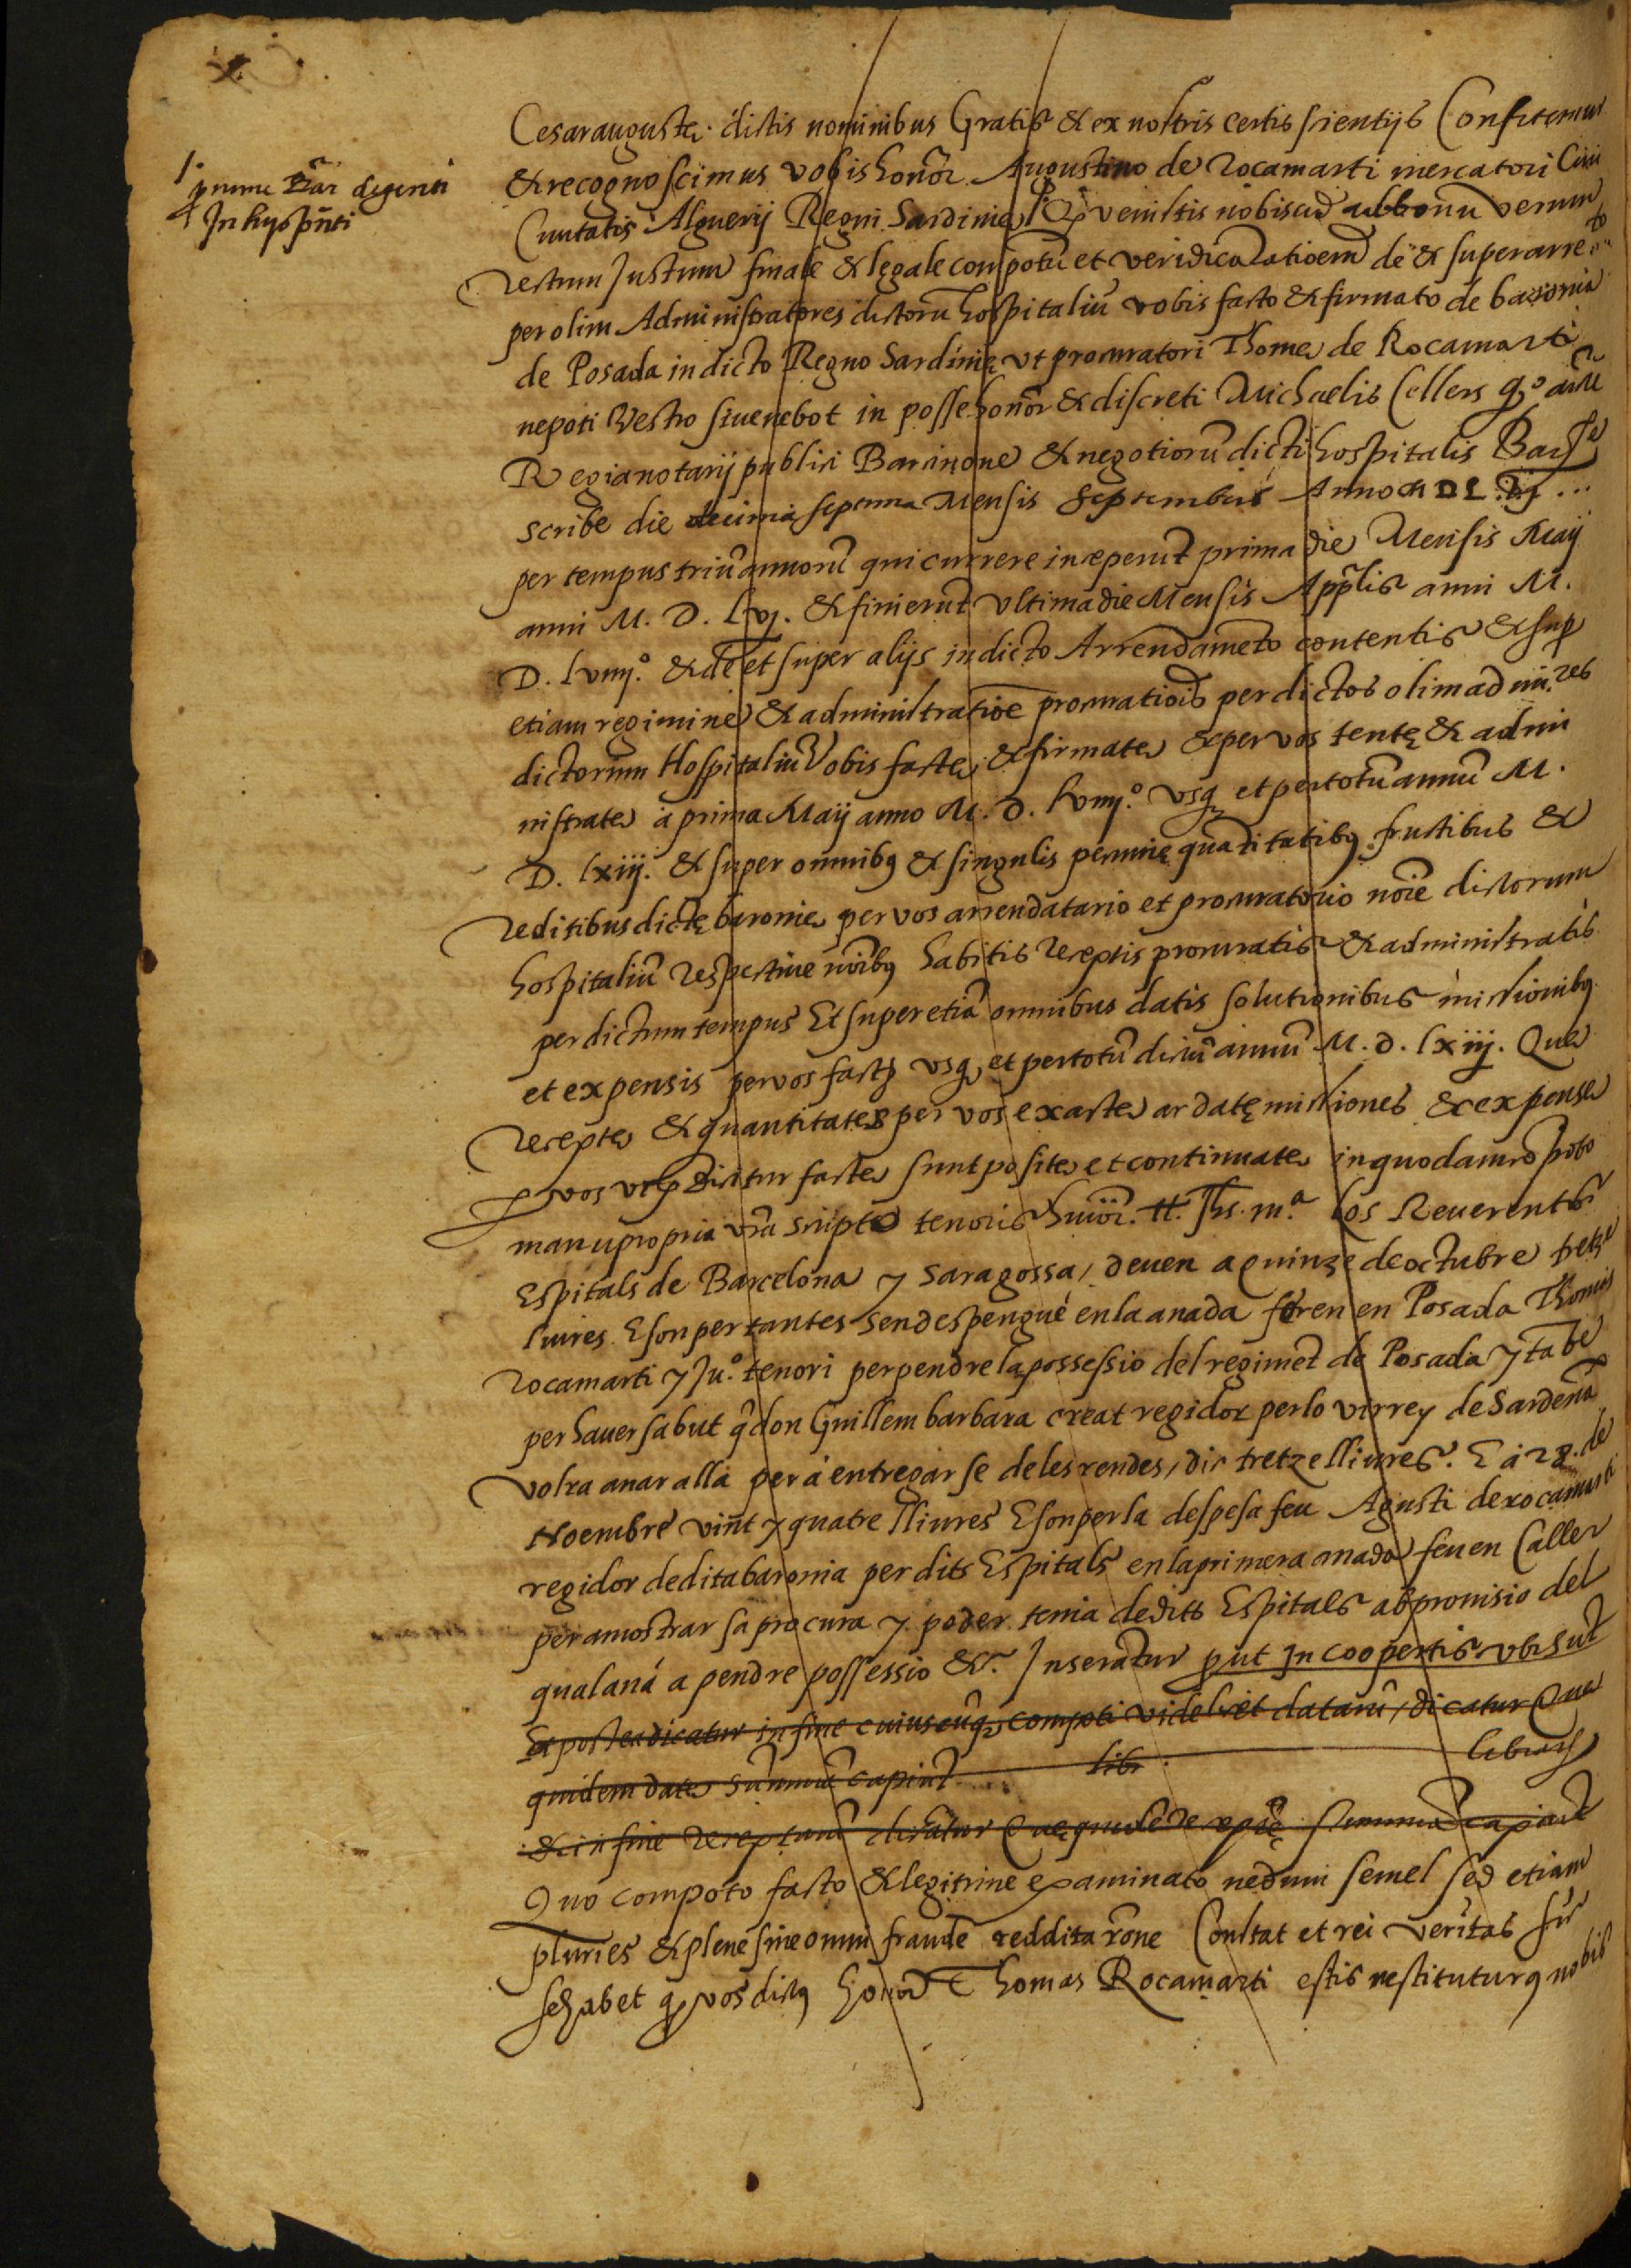 p nunc Bar degenti
In his pñti
Cesarauguste. dictis nominibus Gratis & ex nostris certis scientijs Confitemur
& recognoscimus vobis honor. Augustino de Rocamarti mercatori Ciui
Ciuitatis Alguerij Regni Sardinie Q venistis nobiscũ ad bonũ verum
rectum Justum finale & legale compotũ et veridicã ratioem de & super arre
per olim Administratores dictorũ hospitaliũ vobis facto & firmato de baronia
de Posada in dicto Regno Sardinię vt procuratori Thome de Rocamarti
nepoti Vestro siue nebot in posse honor & discreti Michaelis Cellers q° aucte
Regia notarij publici Barcinone & negotiorũ dicti hospitalis Bar
scribe die decima septima Mensis Septembris Anno M D L Vj
per tempus triũ annorũ qui currere inceperũt prima die Mensis Maij
anni M. D. lvj. & finierũt vltima die Mensis Applis anni M.
D. lviiij.° & de et super alijs in dicto Arrendamẽto contentis & sup
etiam regimine & administratioe procuratiois per dictos olim admi.res
dictorum Hospitaliũ Vobis facte & firmate & per vos tentę & admi
nistrate a prima Maij anno M. D. lviiij.° vsq et per totũ annũ M.
D. lxiij. & super omnibq & singulis pecunię quãtitatibq fructibus &
reditibus dictę baronie per vos arrendatario et procuratorio noie dictorum
hospitaliũ respectiue noibq habitis receptis procuratis & administratis
per dictum tempus Et super etiã omnibus datis solutionibus missionibq
et expensis per vos factis vsq et per totũ dictũ annũ M. D. lxiij. Que
recepte & quantitates per vos exacte ac datę missiones & expense
p vos vt p dicitur facte sunt posite et continuate in quodam
manu propria vrã scripto tenoris huiõi. Jhs. m.ª Los Reuerents
Espitals de Barcelona y Saragossa, deuen a quinze de octubre tretze
liures. E son per tantes sen despengué en la anada feren en Posada Thomas
rocamarti y Ju.° tenori per pendre la possessio del regimẽt de Posada y tãbe
per hauer sabut q don Guillem barbara creat regidor per lo virrey de Sardeña
volra anar allá per á entregar se de les rendes, dic tretze lliures. E a 28. de
Noembre vint y quatre lliures E son per la despesa feu Agusti de rocamarti
regidor de dita baronia per dits Espitals en la primera anada feu en Caller
per amostrar sa procura y poder tenia de dits Espitals ab prouisio del
qual aná a pendre possessio &ª. Inseratur put In coopertis vbi sut
Et postea dicatur in fine cuiuscũq compoti videlicet datarũ, dicatur Que
quidem date summã capiũt libr librarũ
& in fine receptarũ dicatur Que quidẽ recepte summã capiunt
Quo compoto facto & legitime examinato nedum semel sed etiam
pluries & plene sine omni fraude reddita rõne Constat et rei veritas sic
se habet q vos dictq honor Thomas Rocamarti estis restituturq nobis